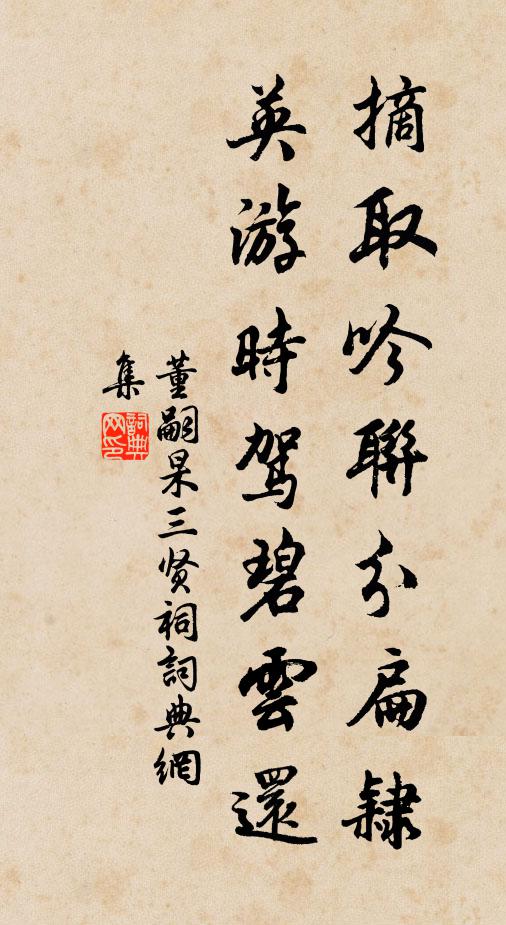 摘取吟聯分扁隸
英游時駕碧雲還
董嗣杲三贤祠詞典網
集
詞典网印